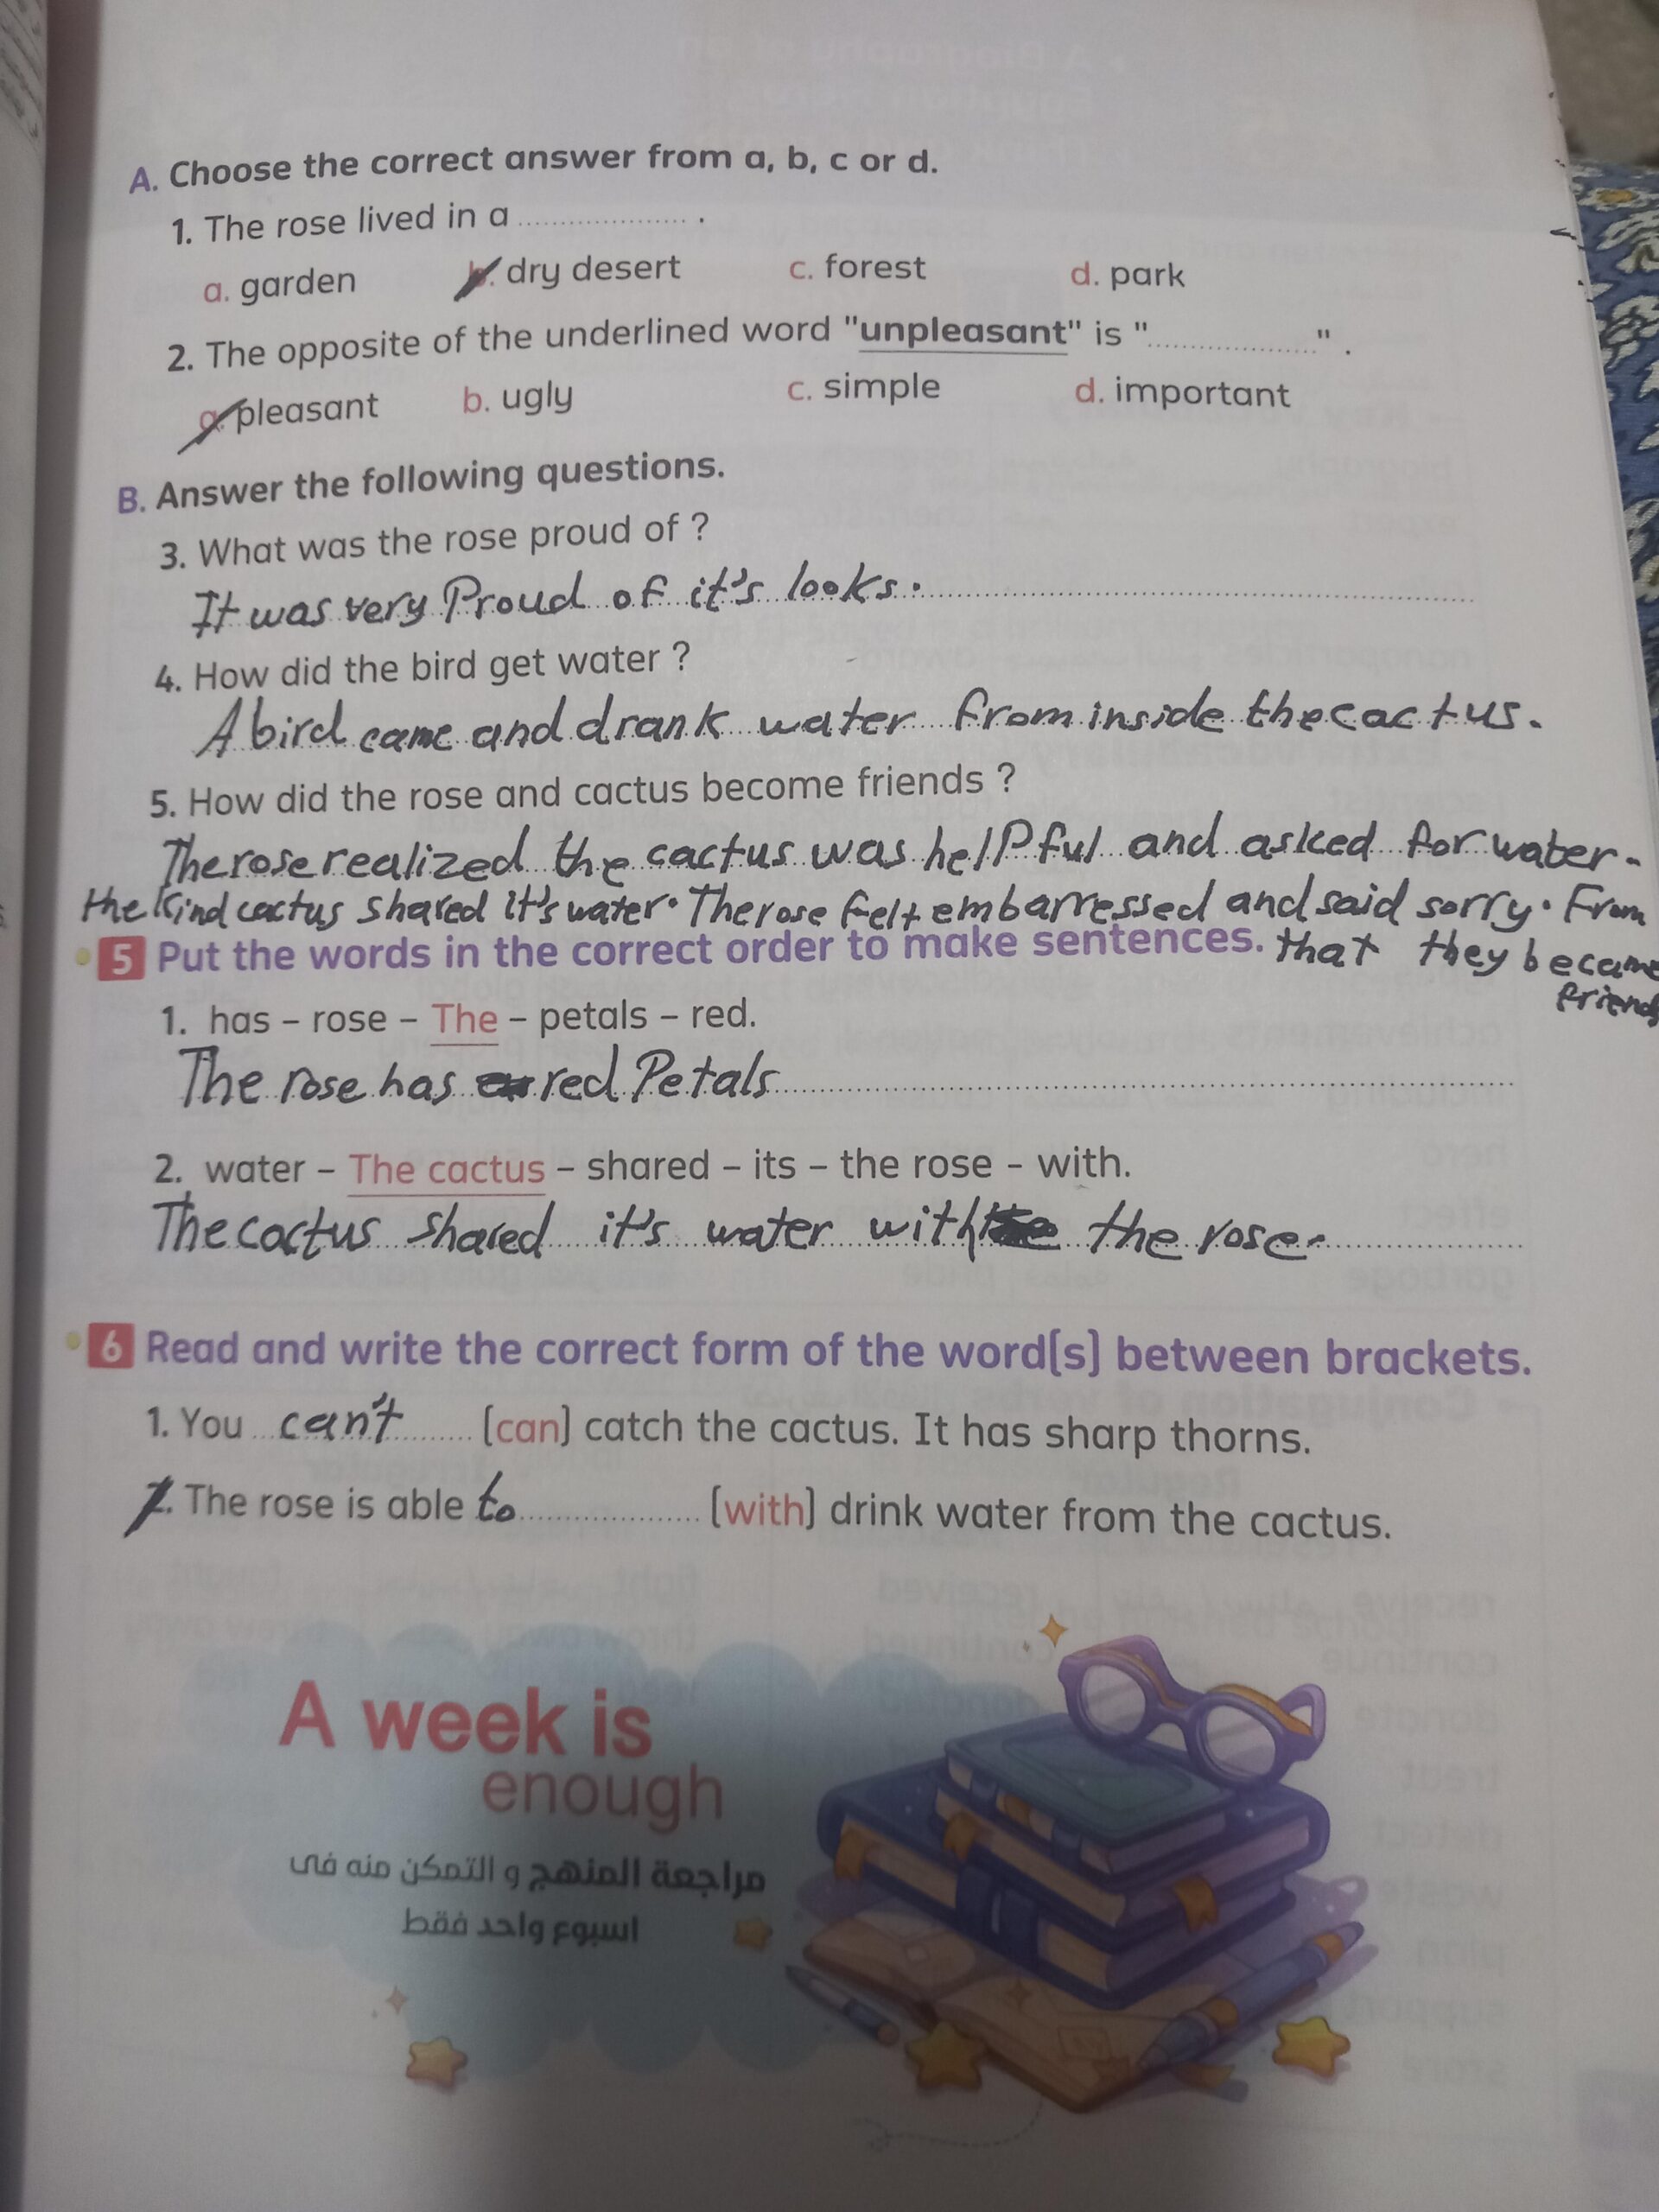 A. Choose the correct answer from a, b, c or d.
1. The rose lived in a .................... .
a. garden b. dry desert c. forest d. park
2. The opposite of the underlined word "unpleasant" is "....................." .
a. pleasant b. ugly c. simple d. important
B. Answer the following questions.
3. What was the rose proud of ?
It was very Proud of it's looks.
4. How did the bird get water ?
A bird came and drank water from inside the cactus.
5. How did the rose and cactus become friends ?
The rose realized the cactus was helPful and asked for water.
the kind cactus shared it's water. The rose felt embarressed and said sorry. From
5 Put the words in the correct order to make sentences. that they became
friends
1. has – rose – The – petals – red.
The rose has red Petals
2. water – The cactus – shared – its – the rose – with.
The cactus shared it's water with the rose.
6 Read and write the correct form of the word(s) between brackets.
1. You can't (can) catch the cactus. It has sharp thorns.
2. The rose is able to (with) drink water from the cactus.
A week is
enough
مراجعة المنهج و التمكن منه فى
اسبوع واحد فقط